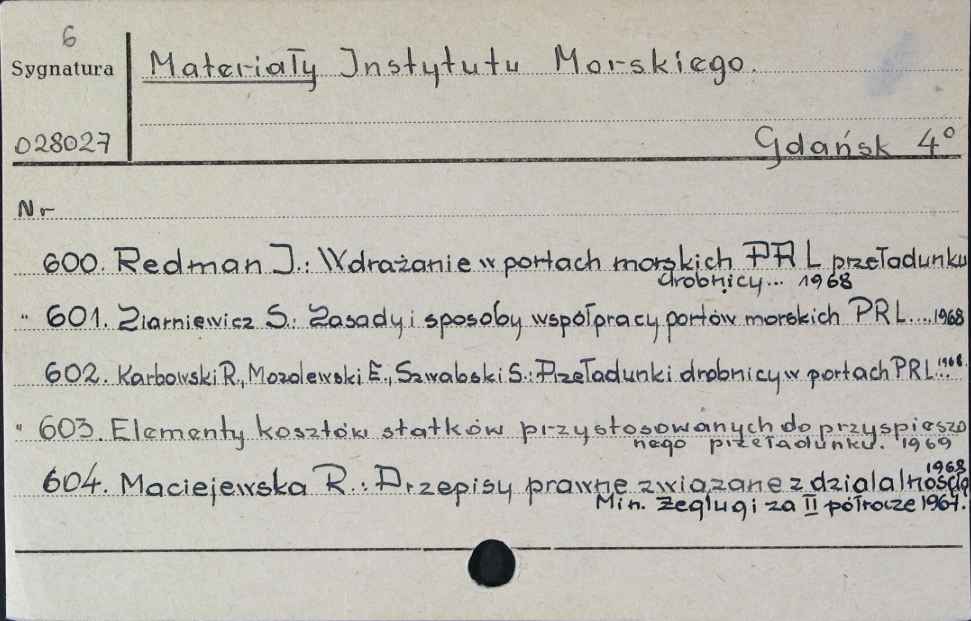 6
Sygnatura
Materiały Instytutu Morskiego.
028027
Gdańsk 4°
Nr
600. Redman J.: Wdrażanie w portach morskich PRL przeładunku
drobnicy... 1968
" 601. Ziarniewicz S.: Zasady i sposoby współpracy portów morskich PRL....1968
602. Karbowski R., Mozolewski E., Szwabski S.: Przeładunki drobnicy w portach PRL...1968.
" 603. Elementy kosztów statków przystosowanych do przyspieszo
nego przeładunku. 1969
604. Maciejewska R.: Przepisy prawne związane z działalnością
1968
Min. Żeglugi za II półrocze 1967.